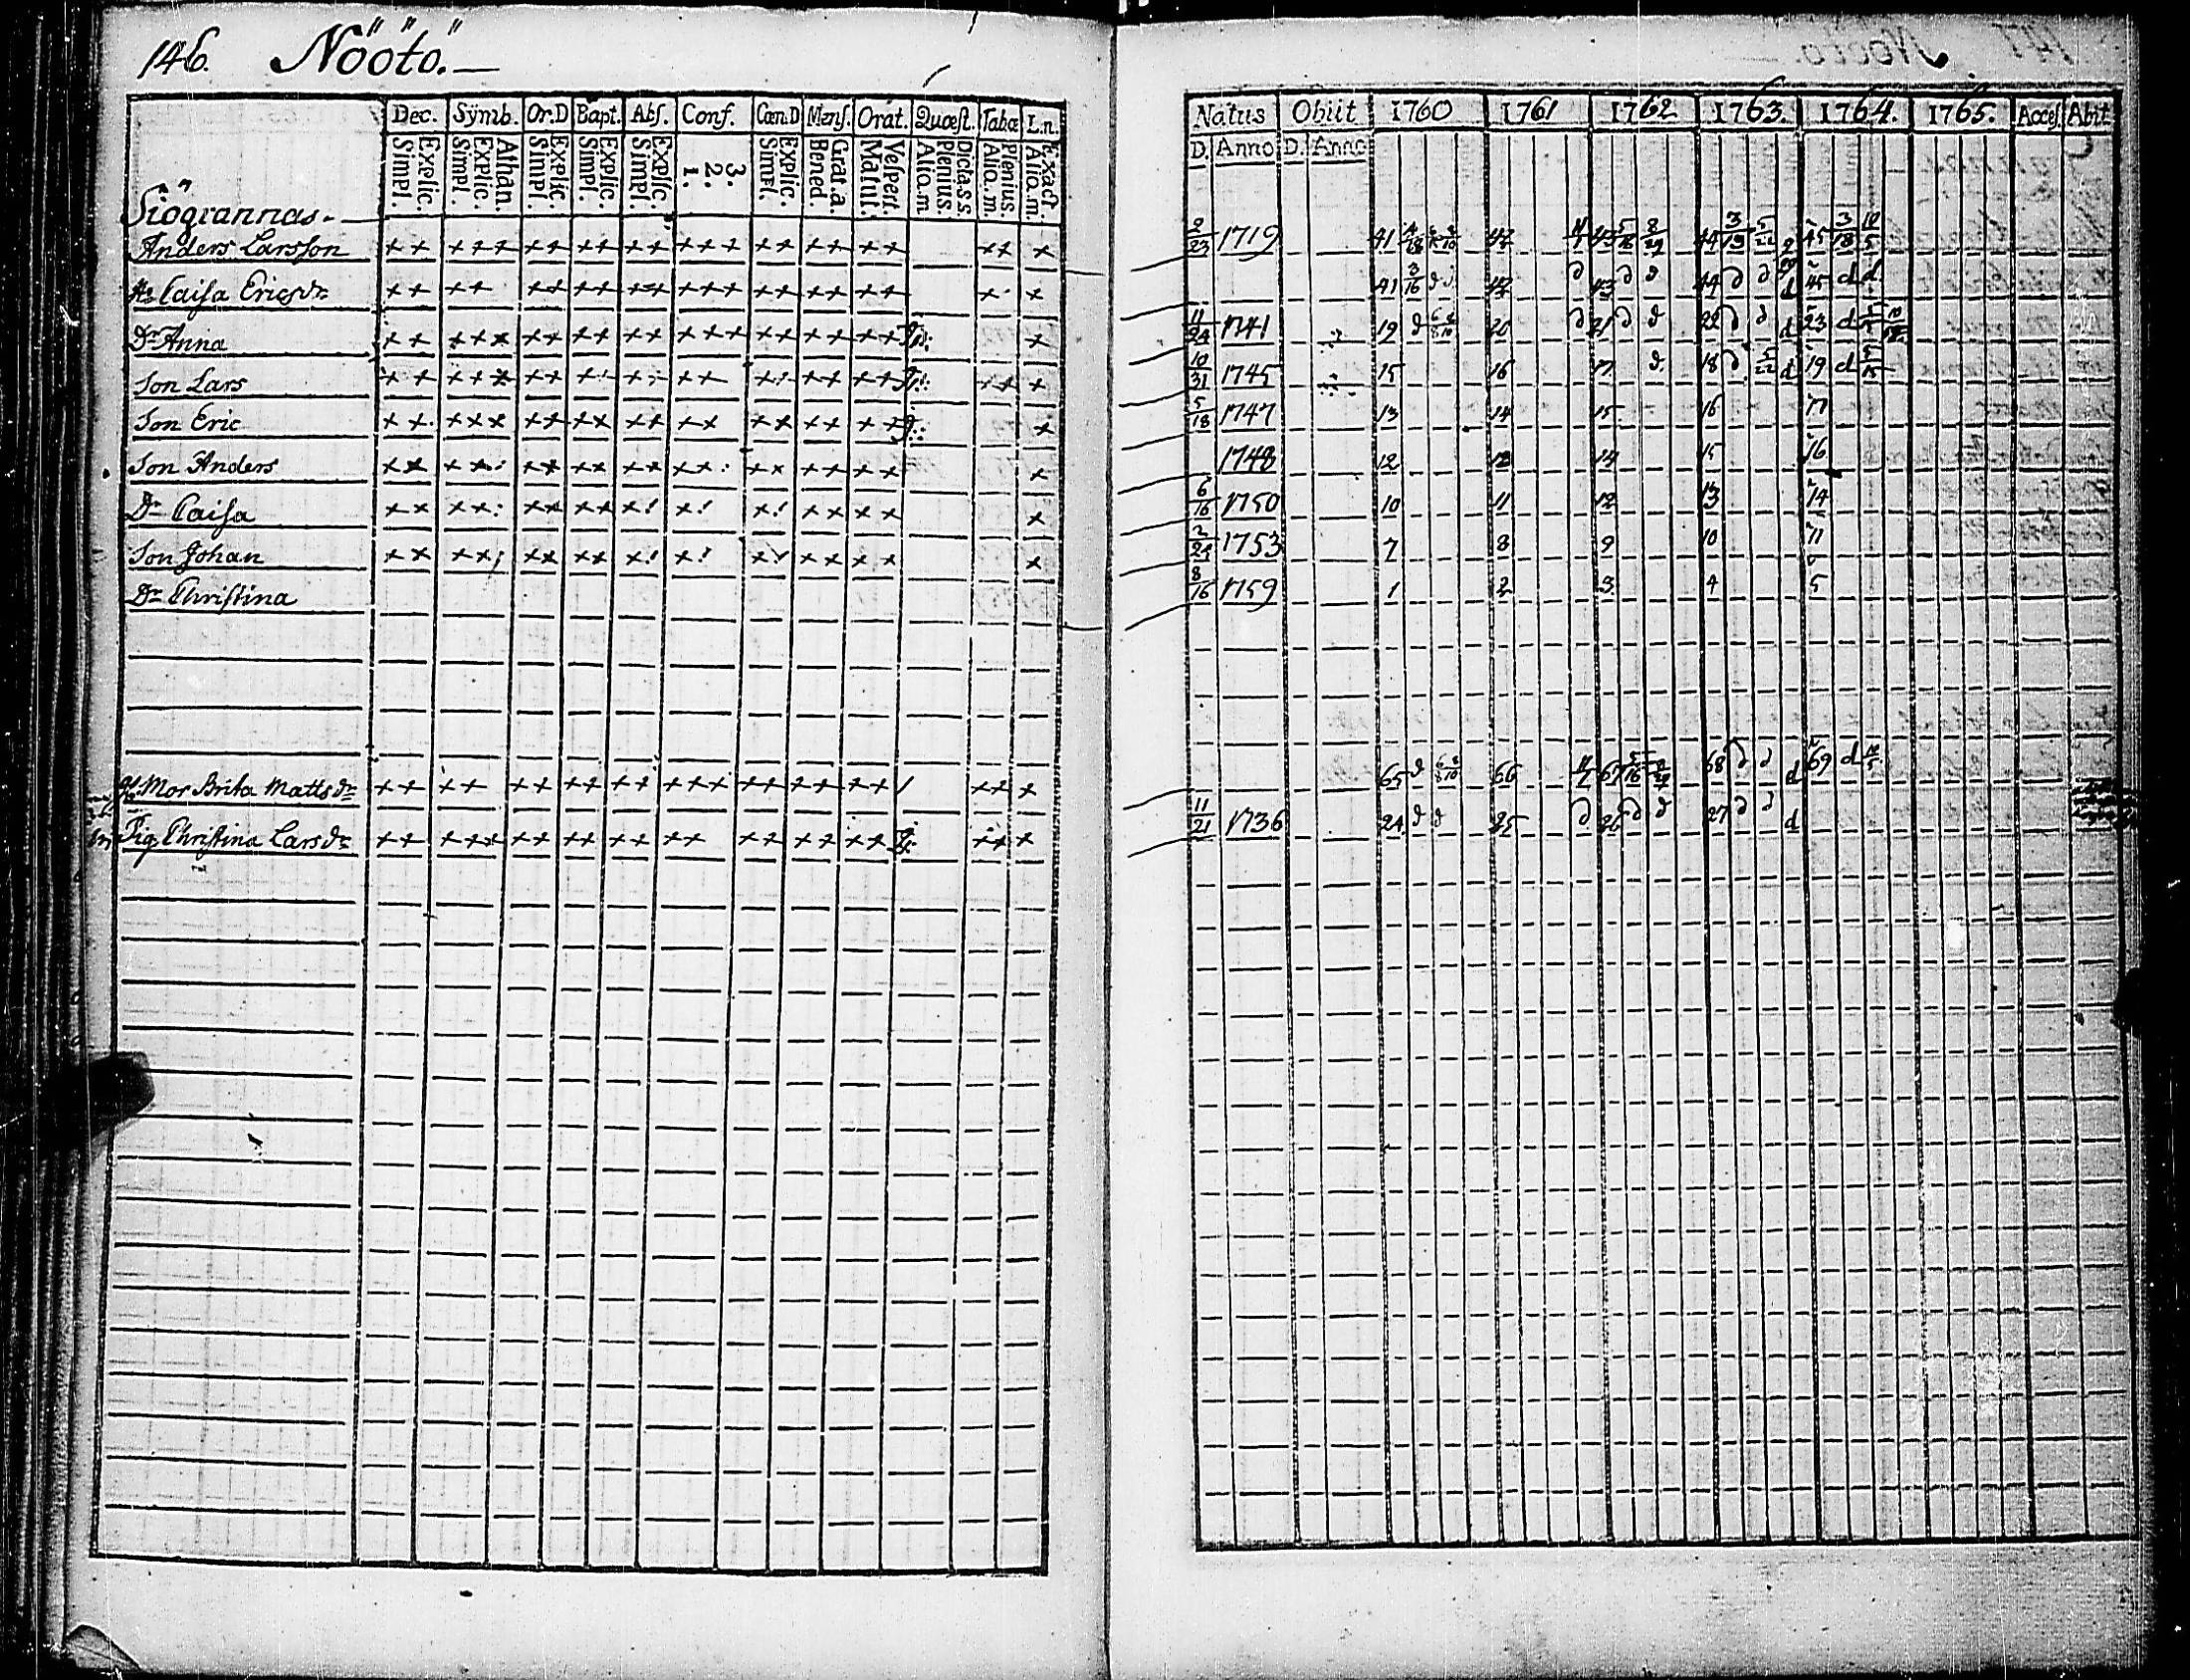 146. Nöötö.
Dec. Sÿmb. Or.D Bapt. Abs. Conf. Cœn.D Mens. Orat. Quæst. Tabæ L.n.
Explic. Simpl. Athan. Explic. Simpl. Explic. Simpl. Explic. Simpl. Explic. Simpl. 3. 2. 1. Explic. Simpl. Grat.a. Bened. Vespert. Matut. Dicta.s.s. Plenius. Alio.m Plenius. Alio.m. Exact. Alio.m.
Siögrannas.
Anders Larsson
Caisa Ericsdr
Dr Anna
Son Lars
Son Eric
Son Anders
Dr Caisa
Son Johan
Dr Christina
Mor Brita Mattsdr
Pig. Christina Larsdr
Natus Obiit 1760 1761 1762 1763. 1764. 1765. Acces. Abit
D. Anno D. Anno
2/23 1719 41 42 43 44 45
41 3/16 42 43 44 45 d d
11/24 1741 19 20 21 22 d 23 d
10/31 1745 15 16 17 18 5/22 d 19 d 5/15
5/18 1747 13 14 15 16 17
1748 12 13 14 15 16
6/16 1750 10 11 12 13 14
2/24 1753 7 8 9 10 11
8/16 1759 1 2 3 4 5
65 66 67 68 d 69 d
11/21 1736 24 25 26 27 d